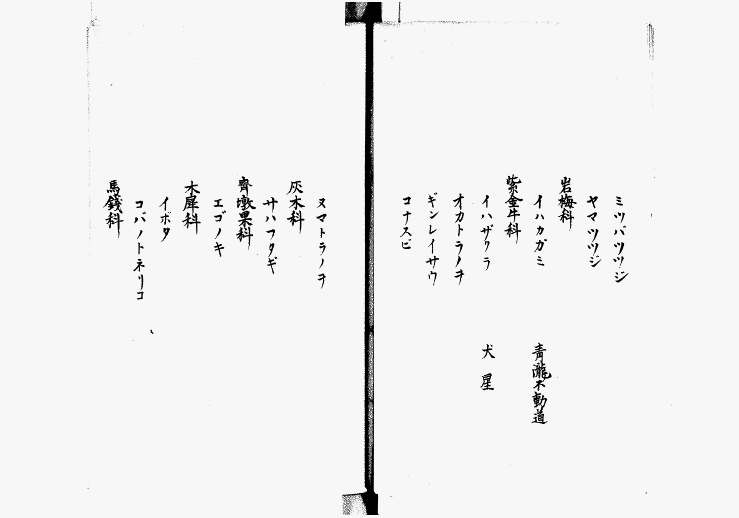 ミツバツツジ
ヤマツツジ
岩梅科
イハカガミ 青瀧不動道
紫金牛科
イハザクラ 犬星
オカトラノヲ
ギンレイサウ
コナスビ
ヌマトラノヲ
灰木科
サハフタギ
齊墩果科
エゴノキ
木犀科
イボタ
コバノトネリコ
馬錢科